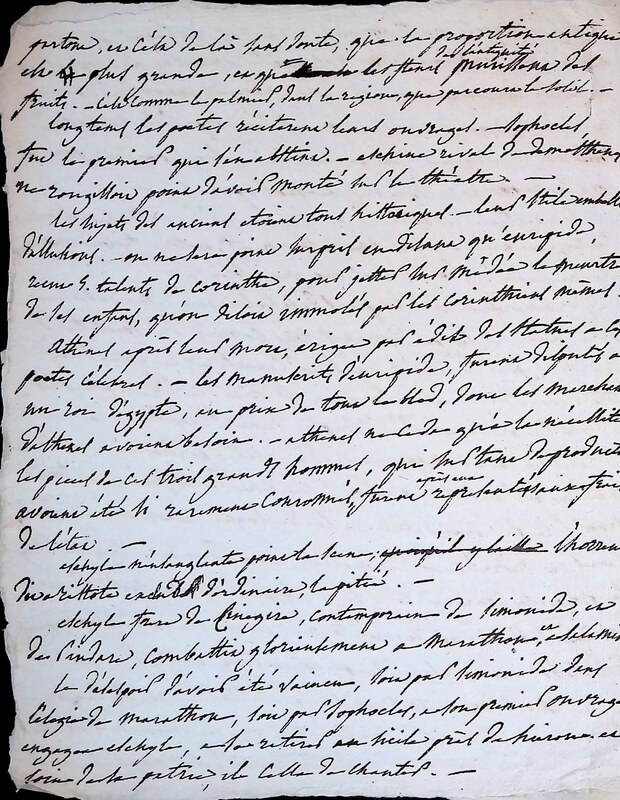 partout, et cela de là sans doute, que la proportion antique
est plus grande, et que les fleurs de l'antiquité des
fruits. - C'est comme le palmier, dans la région, que parcourt le soleil. -
longtems les poetes réciterent leurs ouvrages. - Sophocles,
fut le premier qui s'en abstint. - eschine rival de demosthene
ne rougissoit point d'avoir monté sur le théatre. -
les sujets des anciens etoient tous historiques. - leur stile embelli
d'allusions. - on ne sera point surpris en disant qu'euripide
recut 5. talents de corinthe, pour jetter sur Médée le meurtre
de ses enfans, qu'on disoit immolés par les corinthiens mêmes.
athenes après leur mort, érigea par édit des statues a ces
poetes célebres. - les manuscrits d'euripide, furent députés a
un roi d'égypte, au prix de tout le bled, dont les marchands
d'athenes avoient besoin. - athenes ne ceda qu'à la nécessité
les pieces de ces trois grands hommes, qui sur tant de productions
avoient été si rarement couronnés, furent après eux représentées aux frais
de l'état -
eschyle n'ensanglanta point la scene, l'horreur
dit aristote exclut d'ordinaire, la pitié. -
eschyle frere de Cinegire, contemporain de simonide, et
de Pindare, combattit glorieusement a Marathon, et a salamine
le désespoir d'avoir été vaincu, soit par simonide dans
l'élegie de marathon, soit par sophocles, a son premier ouvrage
engagea eschyle, a se retirer en sicile près de hieron. et
loin de sa patrie, il cessa de chanter. -